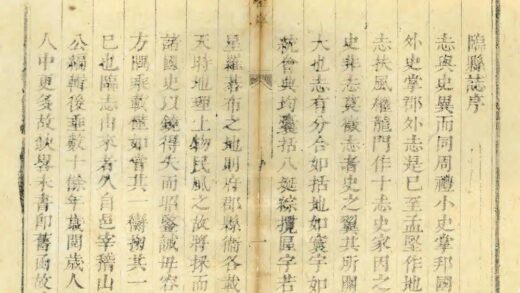 臨縣誌序
志與史異而同周禮小史掌邦國
外史掌郡外志是已至孟堅作地
志扶風繼龍門作十志史家因之
史非志莫徵志者史之翼其所關
大也志有分合如括地如寰宇如
統會典均囊括八埏綜攬區宇若
星羅碁布之地則府郡縣衛各載
天時地理土物民風之故將採而
諸國史以鏡得失而昭鑒誡毋容
方隅乘載僅如嘗其一臠掬其一
已也臨志由來者久自邑宰稽山
公輯後垂數十餘年歲閱歲人
人中更多故畧未書即舊函故